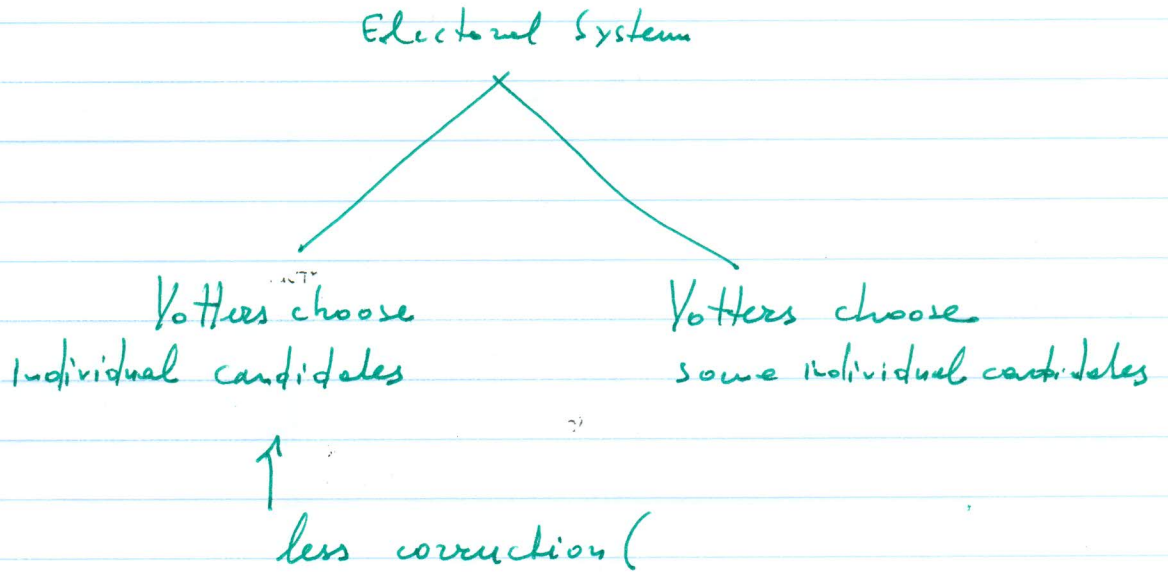 Electoral System
Votters choose
Individual candidates
Votters choose
some individual candidates
less corruction (